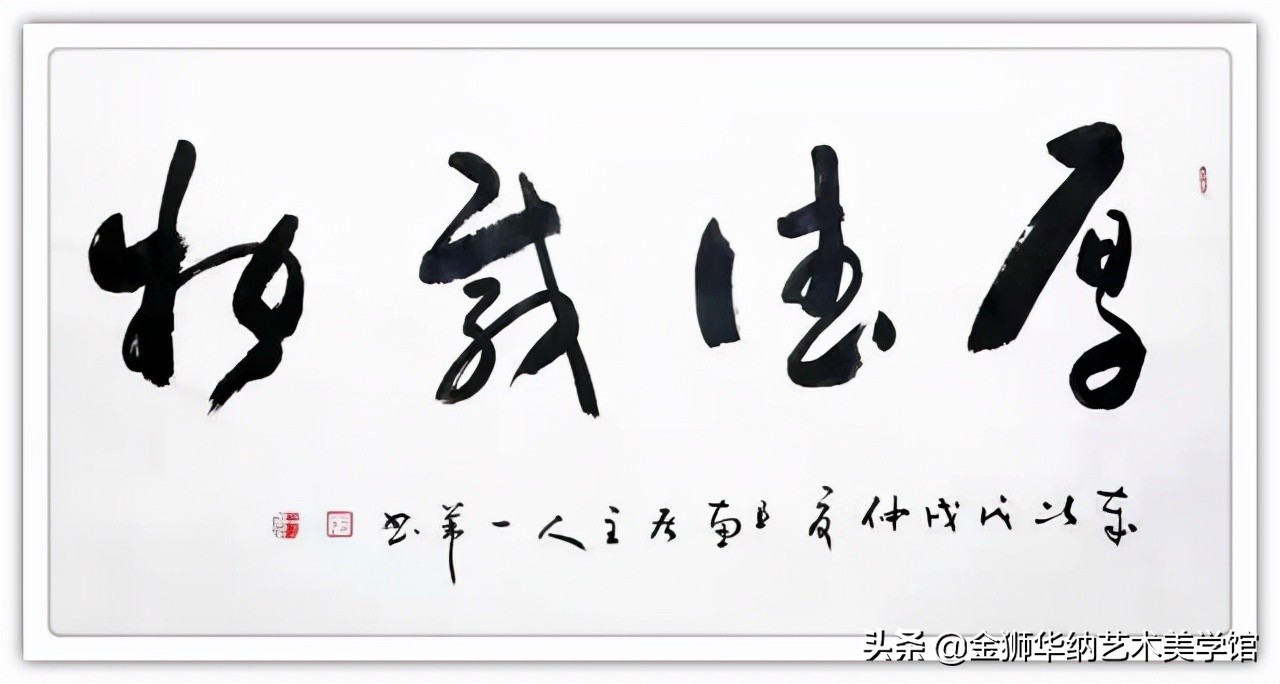 厚德载物
戊戌仲夏居主人一书
头条 @金狮华纳艺术美学馆